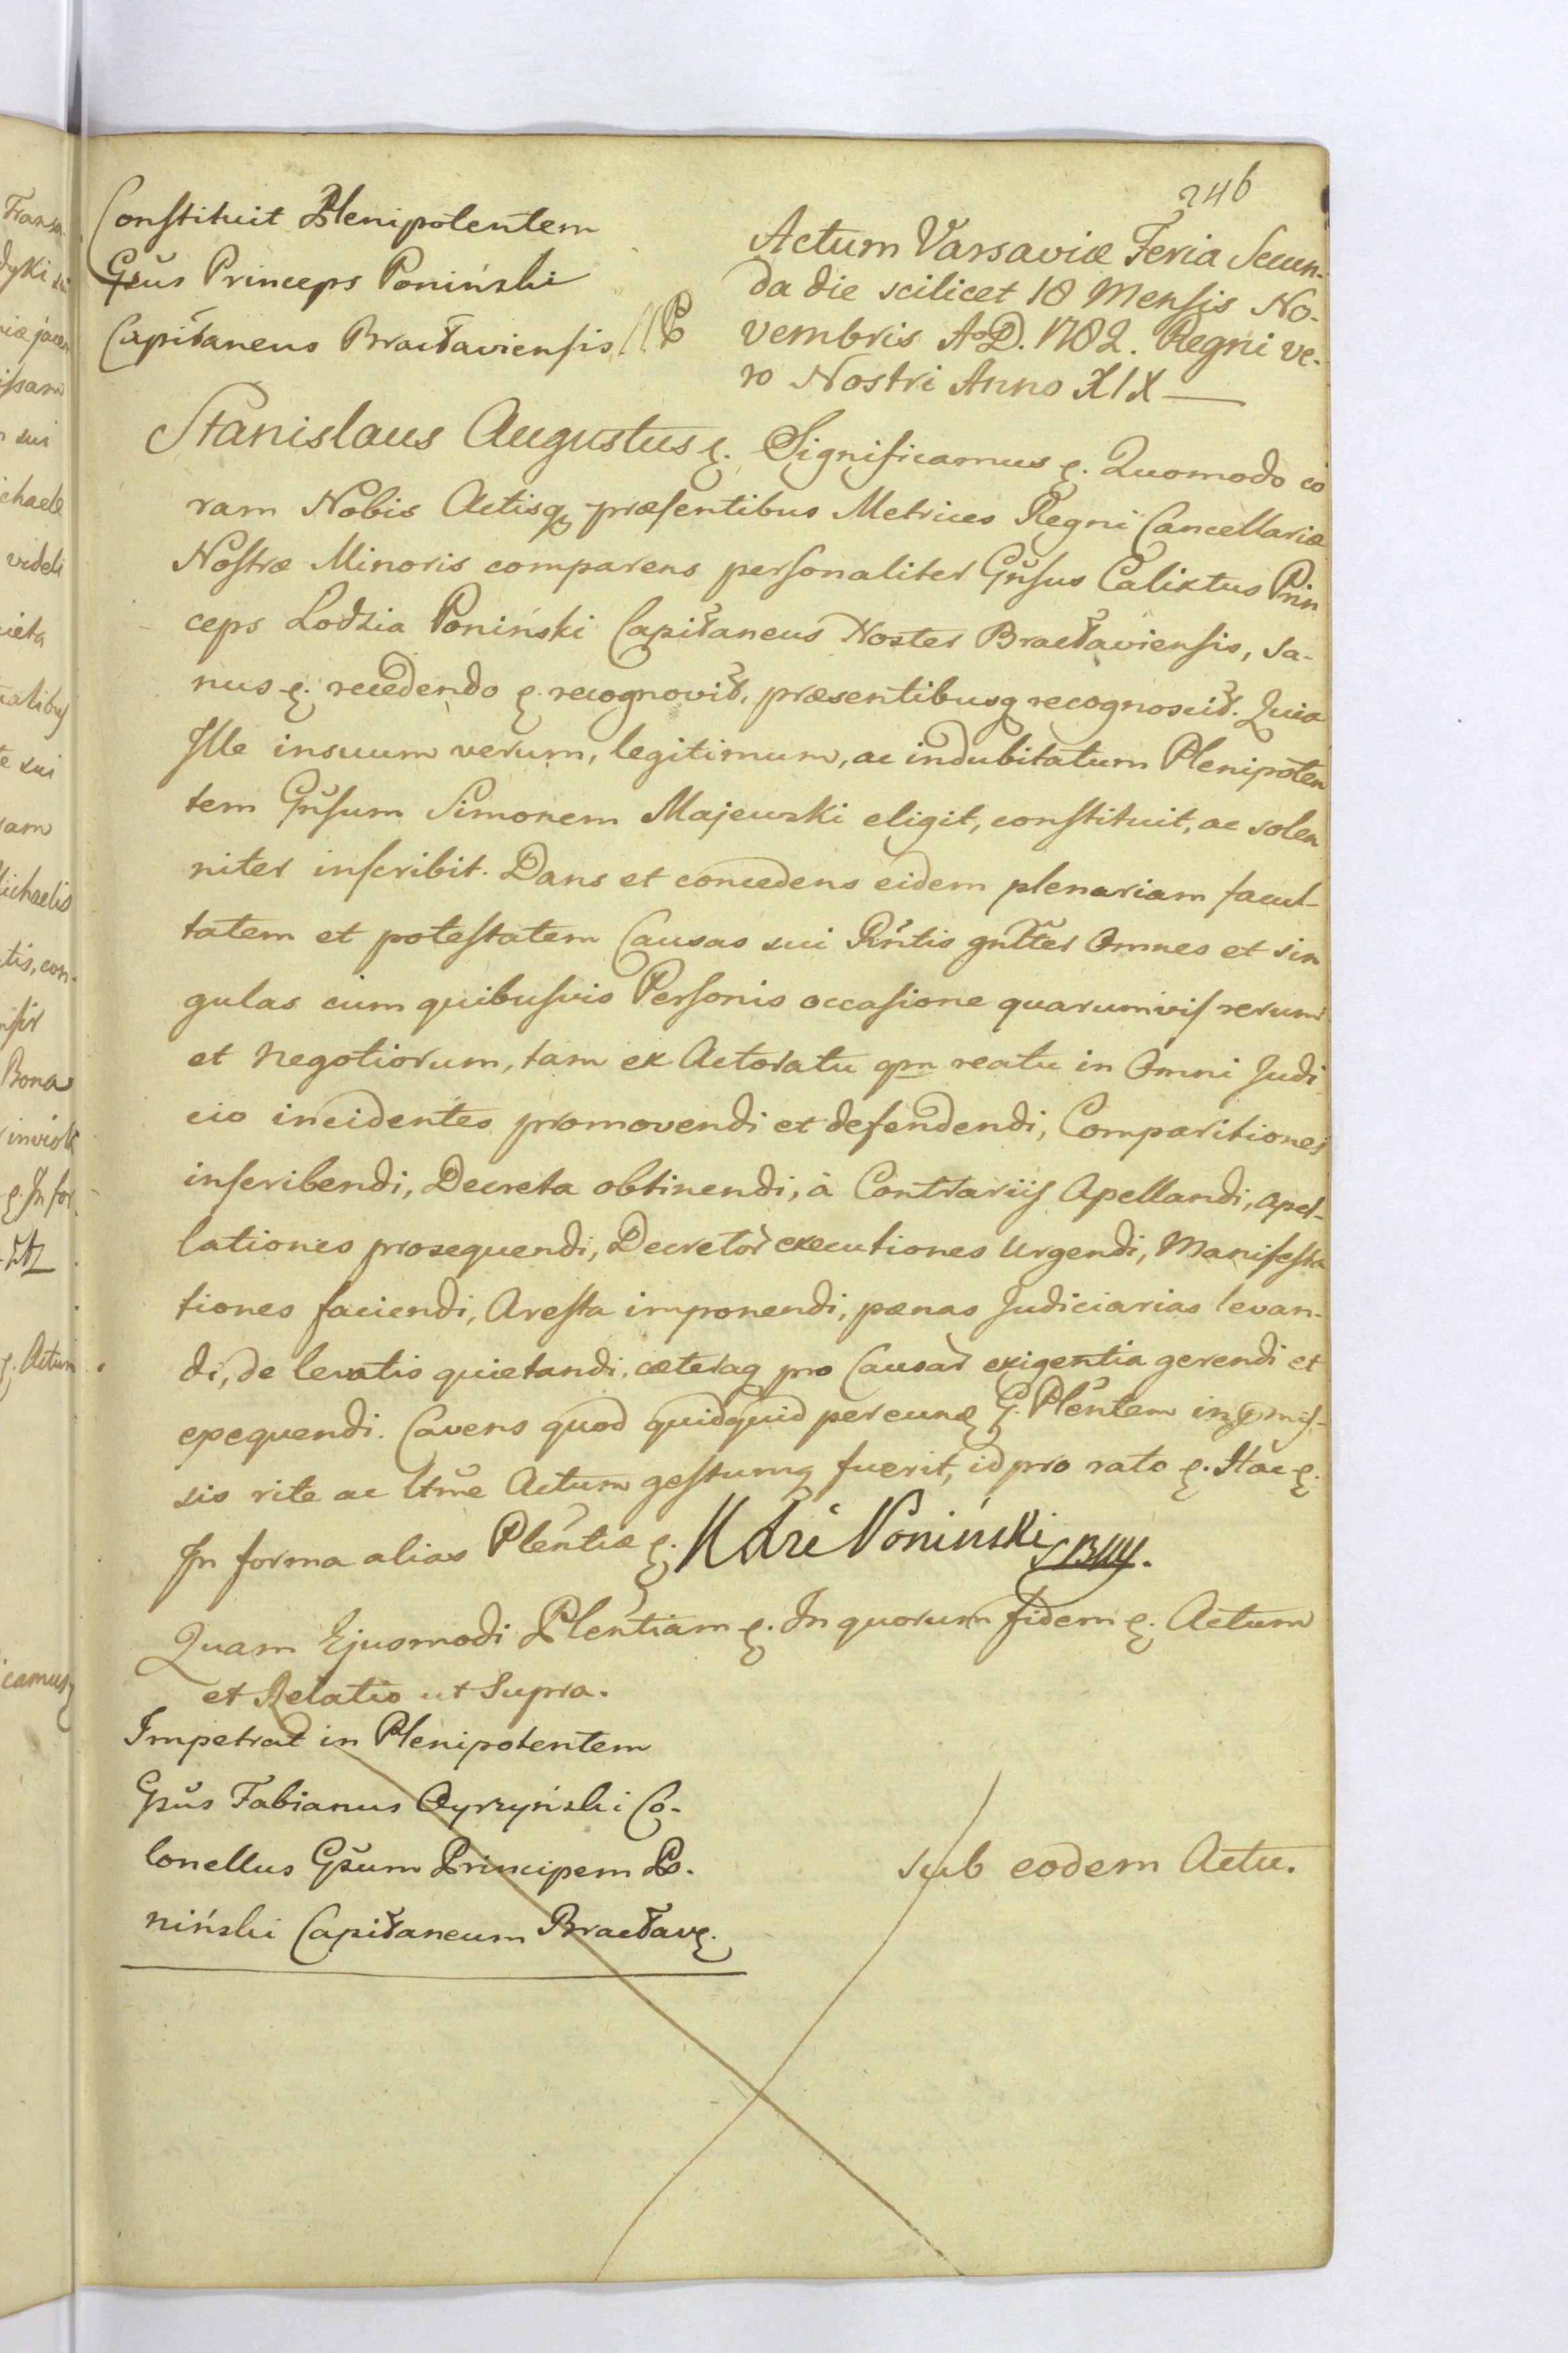 246
Constituit Plenipotentem
Gsus Princeps Poniński
Capitaneus Bracłaviensis
Actum Varsaviæ Feria Secun-
da die scilicet 18 Mensis No-
vembris A.D. 1782. Regni ve-
ro Nostri Anno XIX
Stanislaus Augustus &. Significamus &. Quomodo co
ram Nobis Actisq præsentibus Metrices Regni Cancellariæ
Nostræ Minoris comparens personaliter Gnsus Calixtus Prin
ceps Lodzia Poniński Capitaneus Noster Bractaviensis, sa-
nus &. recedendo &. recognovit, præsentibusq recognoscit. Quia
Ille insuum verum, legitimum, ac indubitatum Plenipoten
tem Gnsum Simonem Majewski eligit, constituit, ac solen
niter inscribit. Dans et concedens eidem plenariam facul-
tatem et potestatem Causas sui Rntis gnlter Omnes et sin
gulas cum quibusvis Personis occasione quarumvis rerum
et Negotiorum, tam ex Actoratu qm reatu in Omni Judi
cio incidentes promovendi et defendendi, Comparitiones
inscribendi, Decreta obtinendi, à Contrariis Apellandi, apel-
lationes prosequendi, Decretor executiones Urgendi, Manifesta
tiones faciendi, Aresta imponendi, pænas Judiciarias levan-
di, de levatis quietandi, cæteraq pro Causar exigentia gerendi et
exequendi. Cavens quod quidquid per eunde G. Plentem in pmis-
sis rite ac ltme Actum gestumq fuerit, id pro rato &. Hac &.
In forma alias Plentiæ &. Poniński
Quam Ejusmodi Plentiam &. In quorum fidem &. Actum
et Relatio ut Supra.
Impetrat in Plenipotentem
Gsus Fabianus Oyrzyński Co-
lonellus Gsum Principem Po-
niński Capitaneum Bractav.
sub eodem Actu.